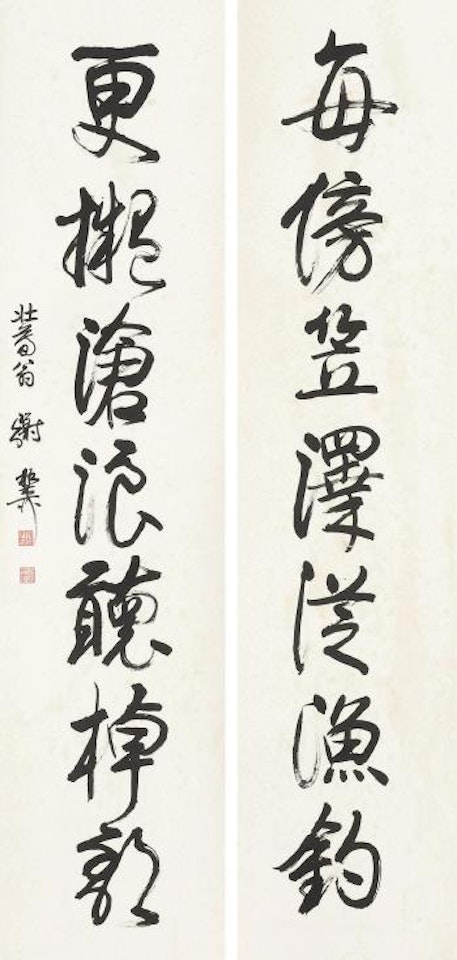 每傍笠澤從漁釣
更擬滄浪聽棹歌
壯暮翁 謝稚柳